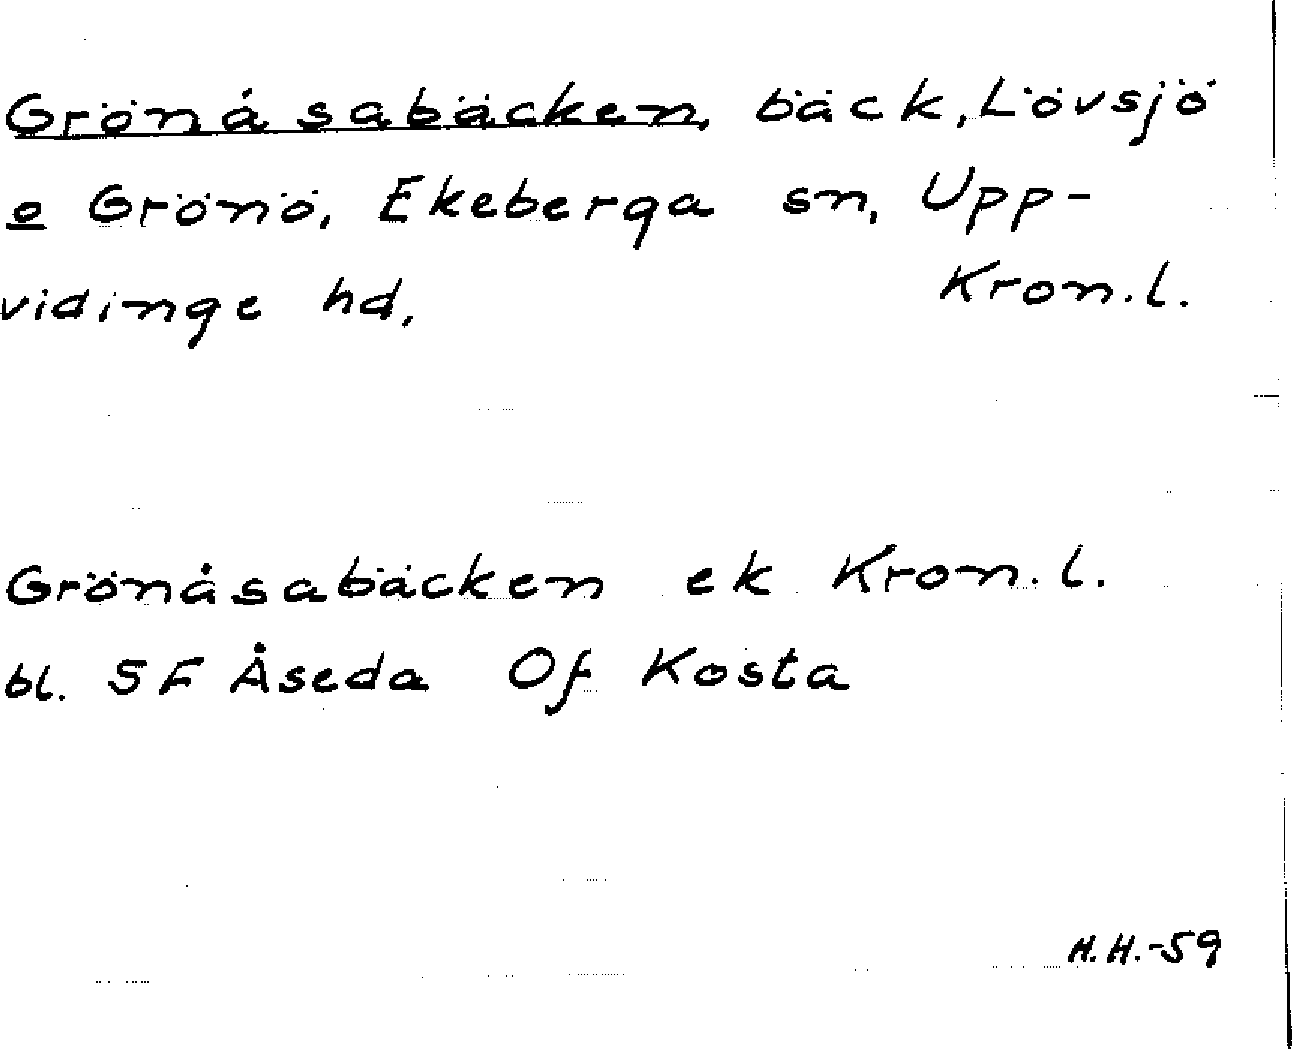 Grönåsabäcken, bäck, Lövsjö
o Grönö, Ekeberga sn, Upp-
vidinge hd, Kron. l.
Grönåsabäcken ek Kron. l.
bl. 5F Åseda Of Kosta
H.H.-59